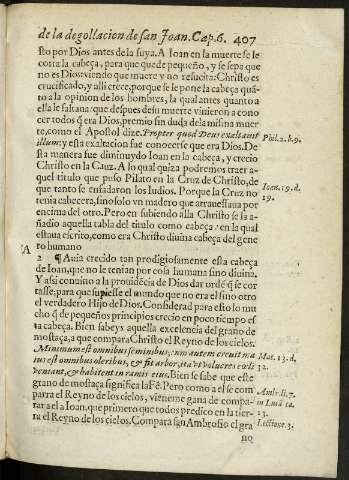 de la degollacion de san Joan. Cap. 6. 407
sto por Dios antes de la suya. A Ioan en la muerte se le
corta la cabeça, para que quede pequeño, y se sepa que
no es Dios viendo que muere y no resucita: Christo es
crucificado, y alli crece, porque se le pone la cabeça quã
to a la opinion de los hombres, la qual antes quanto a
ella le faltaua: que despues de su muerte vinieron a cono
cer todos q̃ era Dios, premio sin duda de la misma muer
te, como el Apostol dize. Propter quod Deus exaltauit
illum: y esta exaltacion fue conocerse que era Dios. De
sta manera fue diminuydo Ioan en la cabeça, y crecio
Christo en la Cauz. A lo qual quiza podremos traer a-
quel titulo que puso Pilato en la Cruz de Christo, de
que tanto se enfadaron los Iudios. Porque la Cruz no
tenia cabecera, sino solo vn madero que atrauessaua por
encima del otro. Pero en subiendo alla Christo se la a-
ñadio aquella tabla del titulo como cabeça: en la qual
estaua escrito, como era Christo diuina cabeça del gene
ro humano
2 ¶ Auia crecido tan prodigiosamente esta cabeça
de Ioan, que no le tenian por cosa humana sino diuina.
Y assi conuino a la prouidẽcia de Dios dar ordẽ q̃ se cor
tasse: para que supiesse el mundo que no era el sino otro
el verdadero Hijo de Dios. Considerad para esto lo mu
cho q̃ de pequeños principios crecio en poco tiempo es
ta cabeça. Bien sabeys aquella excelencia del grano de
mostaça, a que compara Christo el Reyno de los cielos.
Minimum est omnibus seminibus, cum autem creuit ma
ius est omnibus oleribus, & fit arbor, ita vt volucres cœli
veniant, & habitent in ramis eius. Bien se sabe que este
grano de mostaça significa la Fè. Pero como a el se com
parra el Reyno de los cielos, vieneme gana de compa-
rar a el a Ioan, que primero que todos predico en la tier-
ra el Reyno de los cielos. Compara san Ambrosio el gra
no
Phil. 2. b. 9.
Ioan. 19. d.
19.
A
Mat. 13. d.
32.
Ambr. li. 7.
in Lucã ca.
13.
Lectione. 3.